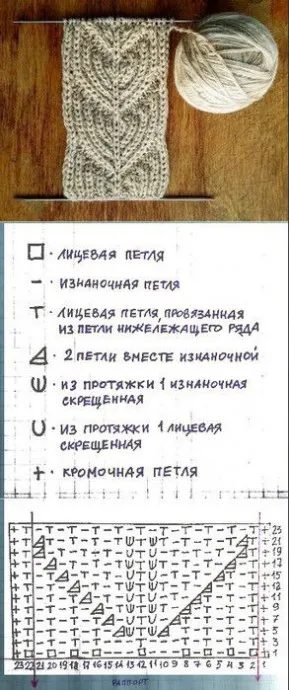 □ · ЛИЦЕВАЯ ПЕТЛЯ
– · ИЗНАНОЧНАЯ ПЕТЛЯ
Т · ЛИЦЕВАЯ ПЕТЛЯ, ПРОВЯЗАННАЯ
ИЗ ПЕТЛИ НИЖЕЛЕЖАЩЕГО РЯДА
· 2 ПЕТЛИ ВМЕСТЕ ИЗНАНОЧНОЙ
· ИЗ ПРОТЯЖКИ 1 ИЗНАНОЧНАЯ
СКРЕЩЕННАЯ
∪ · ИЗ ПРОТЯЖКИ 1 ЛИЦЕВАЯ
СКРЕЩЕННАЯ
+ · КРОМОЧНАЯ ПЕТЛЯ
23
21
19
17
15
13
11
9
7
5
3
1
23 22 21 20 19 18 17 16 15 14 13 12 11 10 9 8 7 6 5 4 3 2 1
РАППОРТ